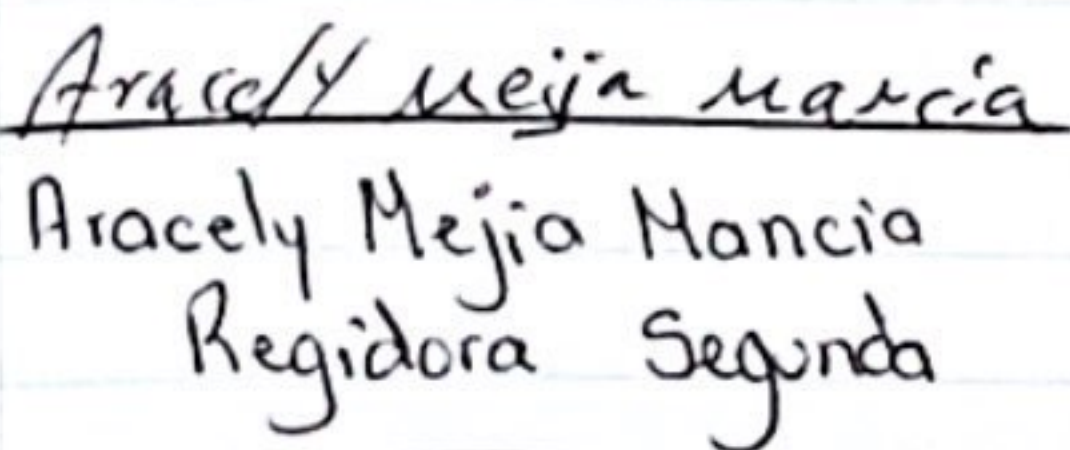 Aracely Mejia Mancía
Aracely Mejia Mancia
Regidora Segunda